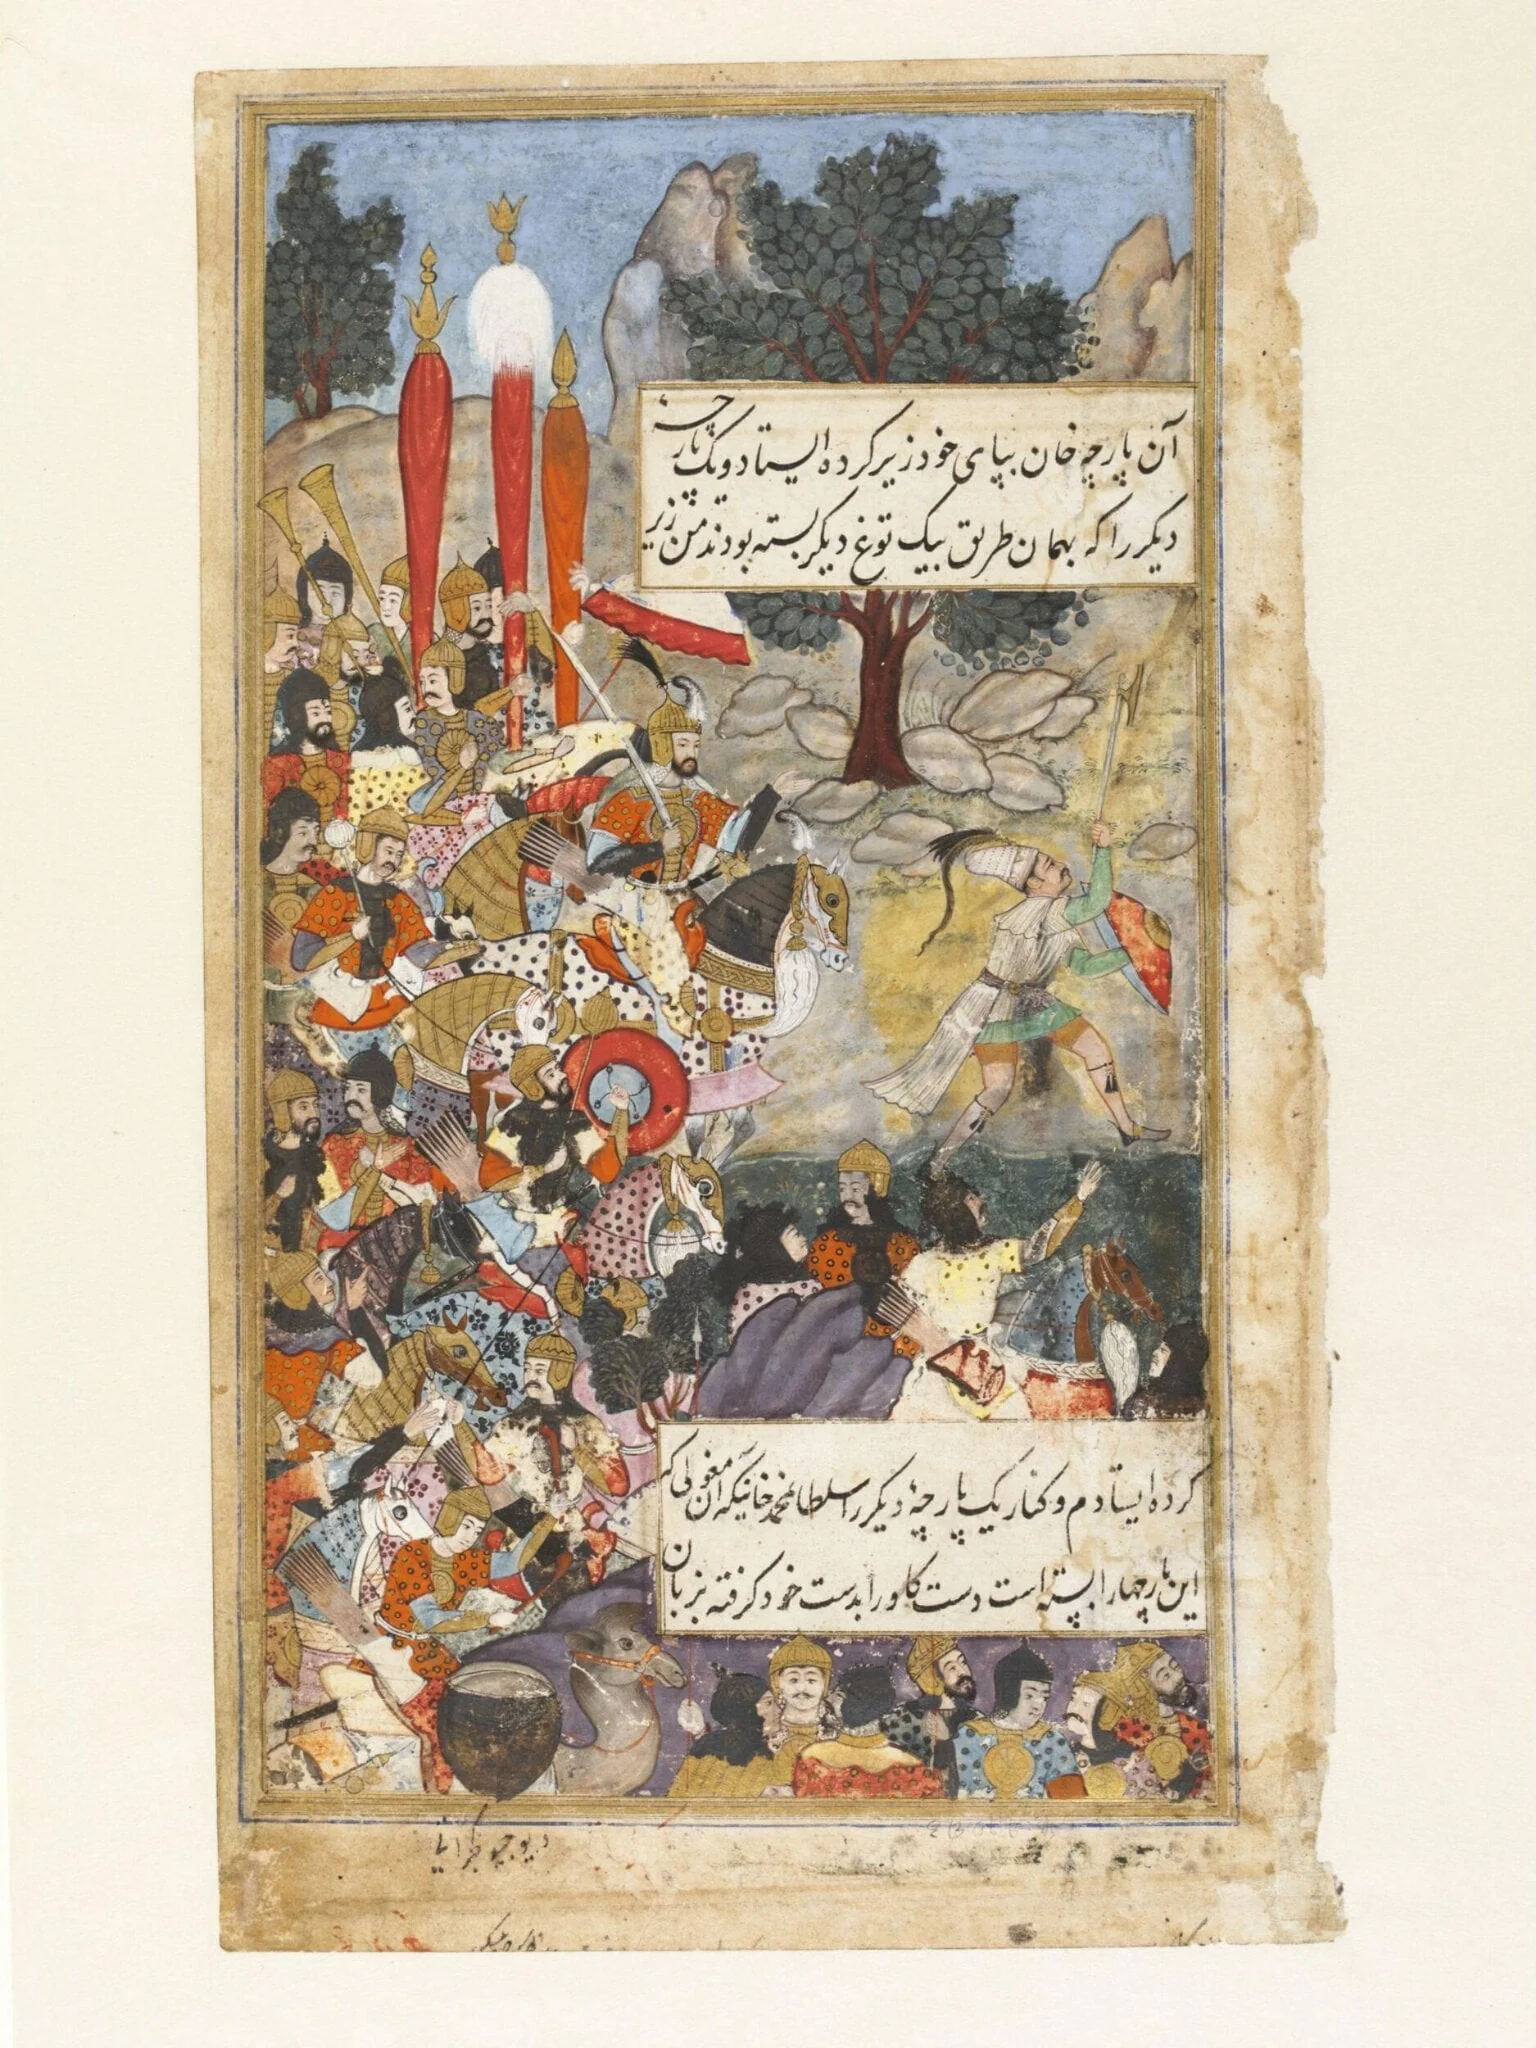 آن پارچه خان بپای خود زیر کرده ایستاد و یک پارچهٔ
دیکر را که بهمان طریق بیک توغ دیکر بسته بودند من زیر
کرده ایستادم و کنار یک پارچهٔ دیکر را سلطان محمد خانیکه آن مغولی که
این پارچهارا بسته است دست کاو را بدست خود کرفته بزبان